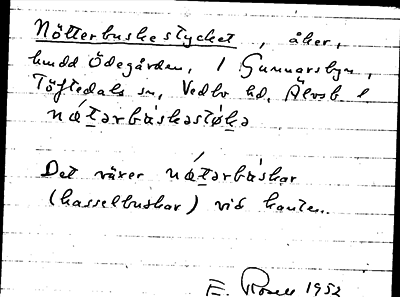 Nötterbuskestycket, åker,
hmdd Ödegården, 1 Gunnarsbyn,
Töftedals sn, Vedbo hd, Älvsb. l
nǽtərbùskəstỳkə
Det växer nǽtərbùskar
(hasselbuskar) vid kanten.
E. Rosell 1952